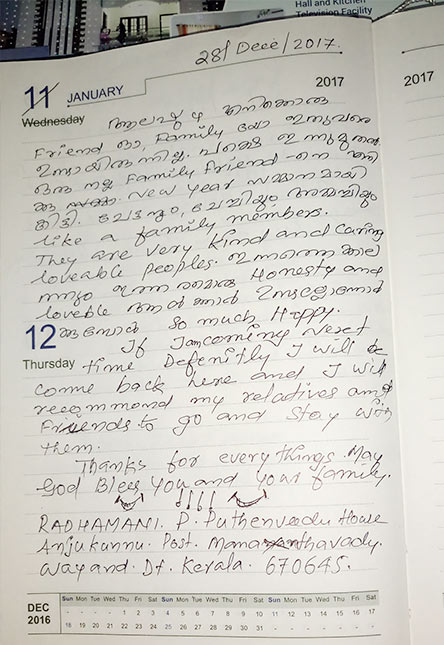 Hall and Kitchen
Television Facility
28/ Dece/2017.
11 JANUARY
2017
2017
Wednesday
ആലപ്പുഴ എനിക്കൊരു
Friend ഓ, Family യോ ഇതുവരെ
ഇല്ലായിരുന്നില്ല. പക്ഷെ ഇന്നുമുതൽ
ഒരു നല്ല Family Friend-നെ എനി
ക്കു New Year സമ്മാനമായി
കിട്ടി. ചേട്ടനും, ചേച്ചിയും, അമ്മച്ചിയും
like a family members.
They are very kind and caring
loveable peoples. ഇന്നത്തെ കാല
ഇത്ര Honesty and
loveble ആൾക്കാർ
12 so much Happy.
If Iamcoming Next
Thursday
time Defenitly I will be
come back here and I will
recommond my relatives and
Friends to go and Stay with
them.
Thanks for everythings. May
God Bless You and your family.
RADHAMANI. P. Puthenveedu House
Anjukunnu. Post. Mananthavady.
Wayand. Dt. Kerala. 670645.
DEC
2016
Sun Mon Tue Wed Thu Fri Sat Sun Mon Tue Wed Thu Fri Sat Sun Mon Tue Wed Thu Fri Sat
1 2 3 4 5 6 7 8 9 10 11 12 13 14 15 16 17
18 19 20 21 22 23 24 25 26 27 28 29 30 31